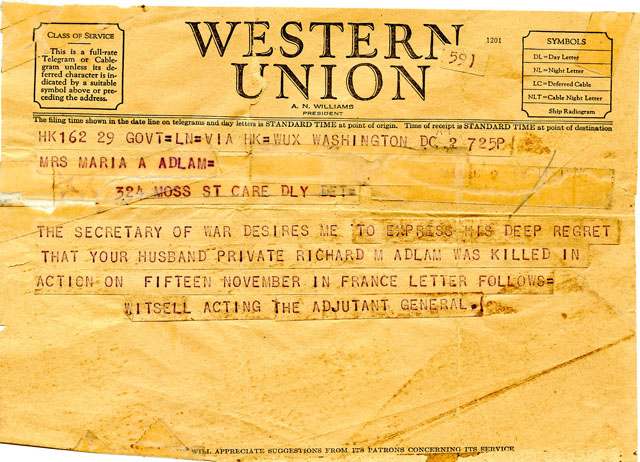 CLASS OF SERVICE
This is a full-rate
Telegram or Cable-
gram unless its de-
ferred character is in-
dicated by a suitable
symbol above or pre-
ceding the address.
WESTERN
UNION
A. N. WILLIAMS
PRESIDENT
591
1201
SYMBOLS
DL=Day Letter
NL=Night Letter
LC=Deferred Cable
NLT=Cable Night Letter
Ship Radiogram
The filing time shown in the date line on telegrams and day letters is STANDARD TIME at point of origin. Time of receipt is STANDARD TIME at point of destination
HK162 29 GOVT=LN=VIA HK=WUX WASHINGTON DC 2 725P
MRS MARIA A ADLAM=
32A MOSS ST CARE DLY DET=
THE SECRETARY OF WAR DESIRES ME TO EXPRESS HIS DEEP REGRET
THAT YOUR HUSBAND PRIVATE RICHARD M ADLAM WAS KILLED IN
ACTION ON FIFTEEN NOVEMBER IN FRANCE LETTER FOLLOWS=
WITSELL ACTING THE ADJUTANT GENERAL.
WILL APPRECIATE SUGGESTIONS FROM ITS PATRONS CONCERNING ITS SERVICE